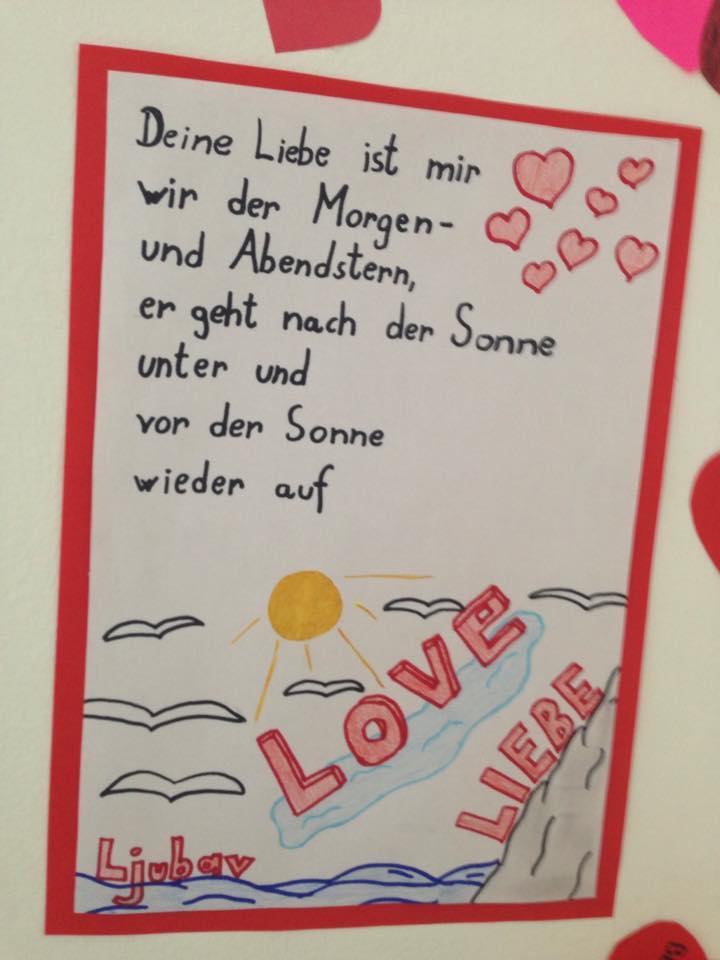 Deine Liebe ist mir
wir der Morgen-
und Abendstern,
er geht nach der Sonne
unter und
vor der Sonne
wieder auf
LOVE
LIEBE
Ljubav